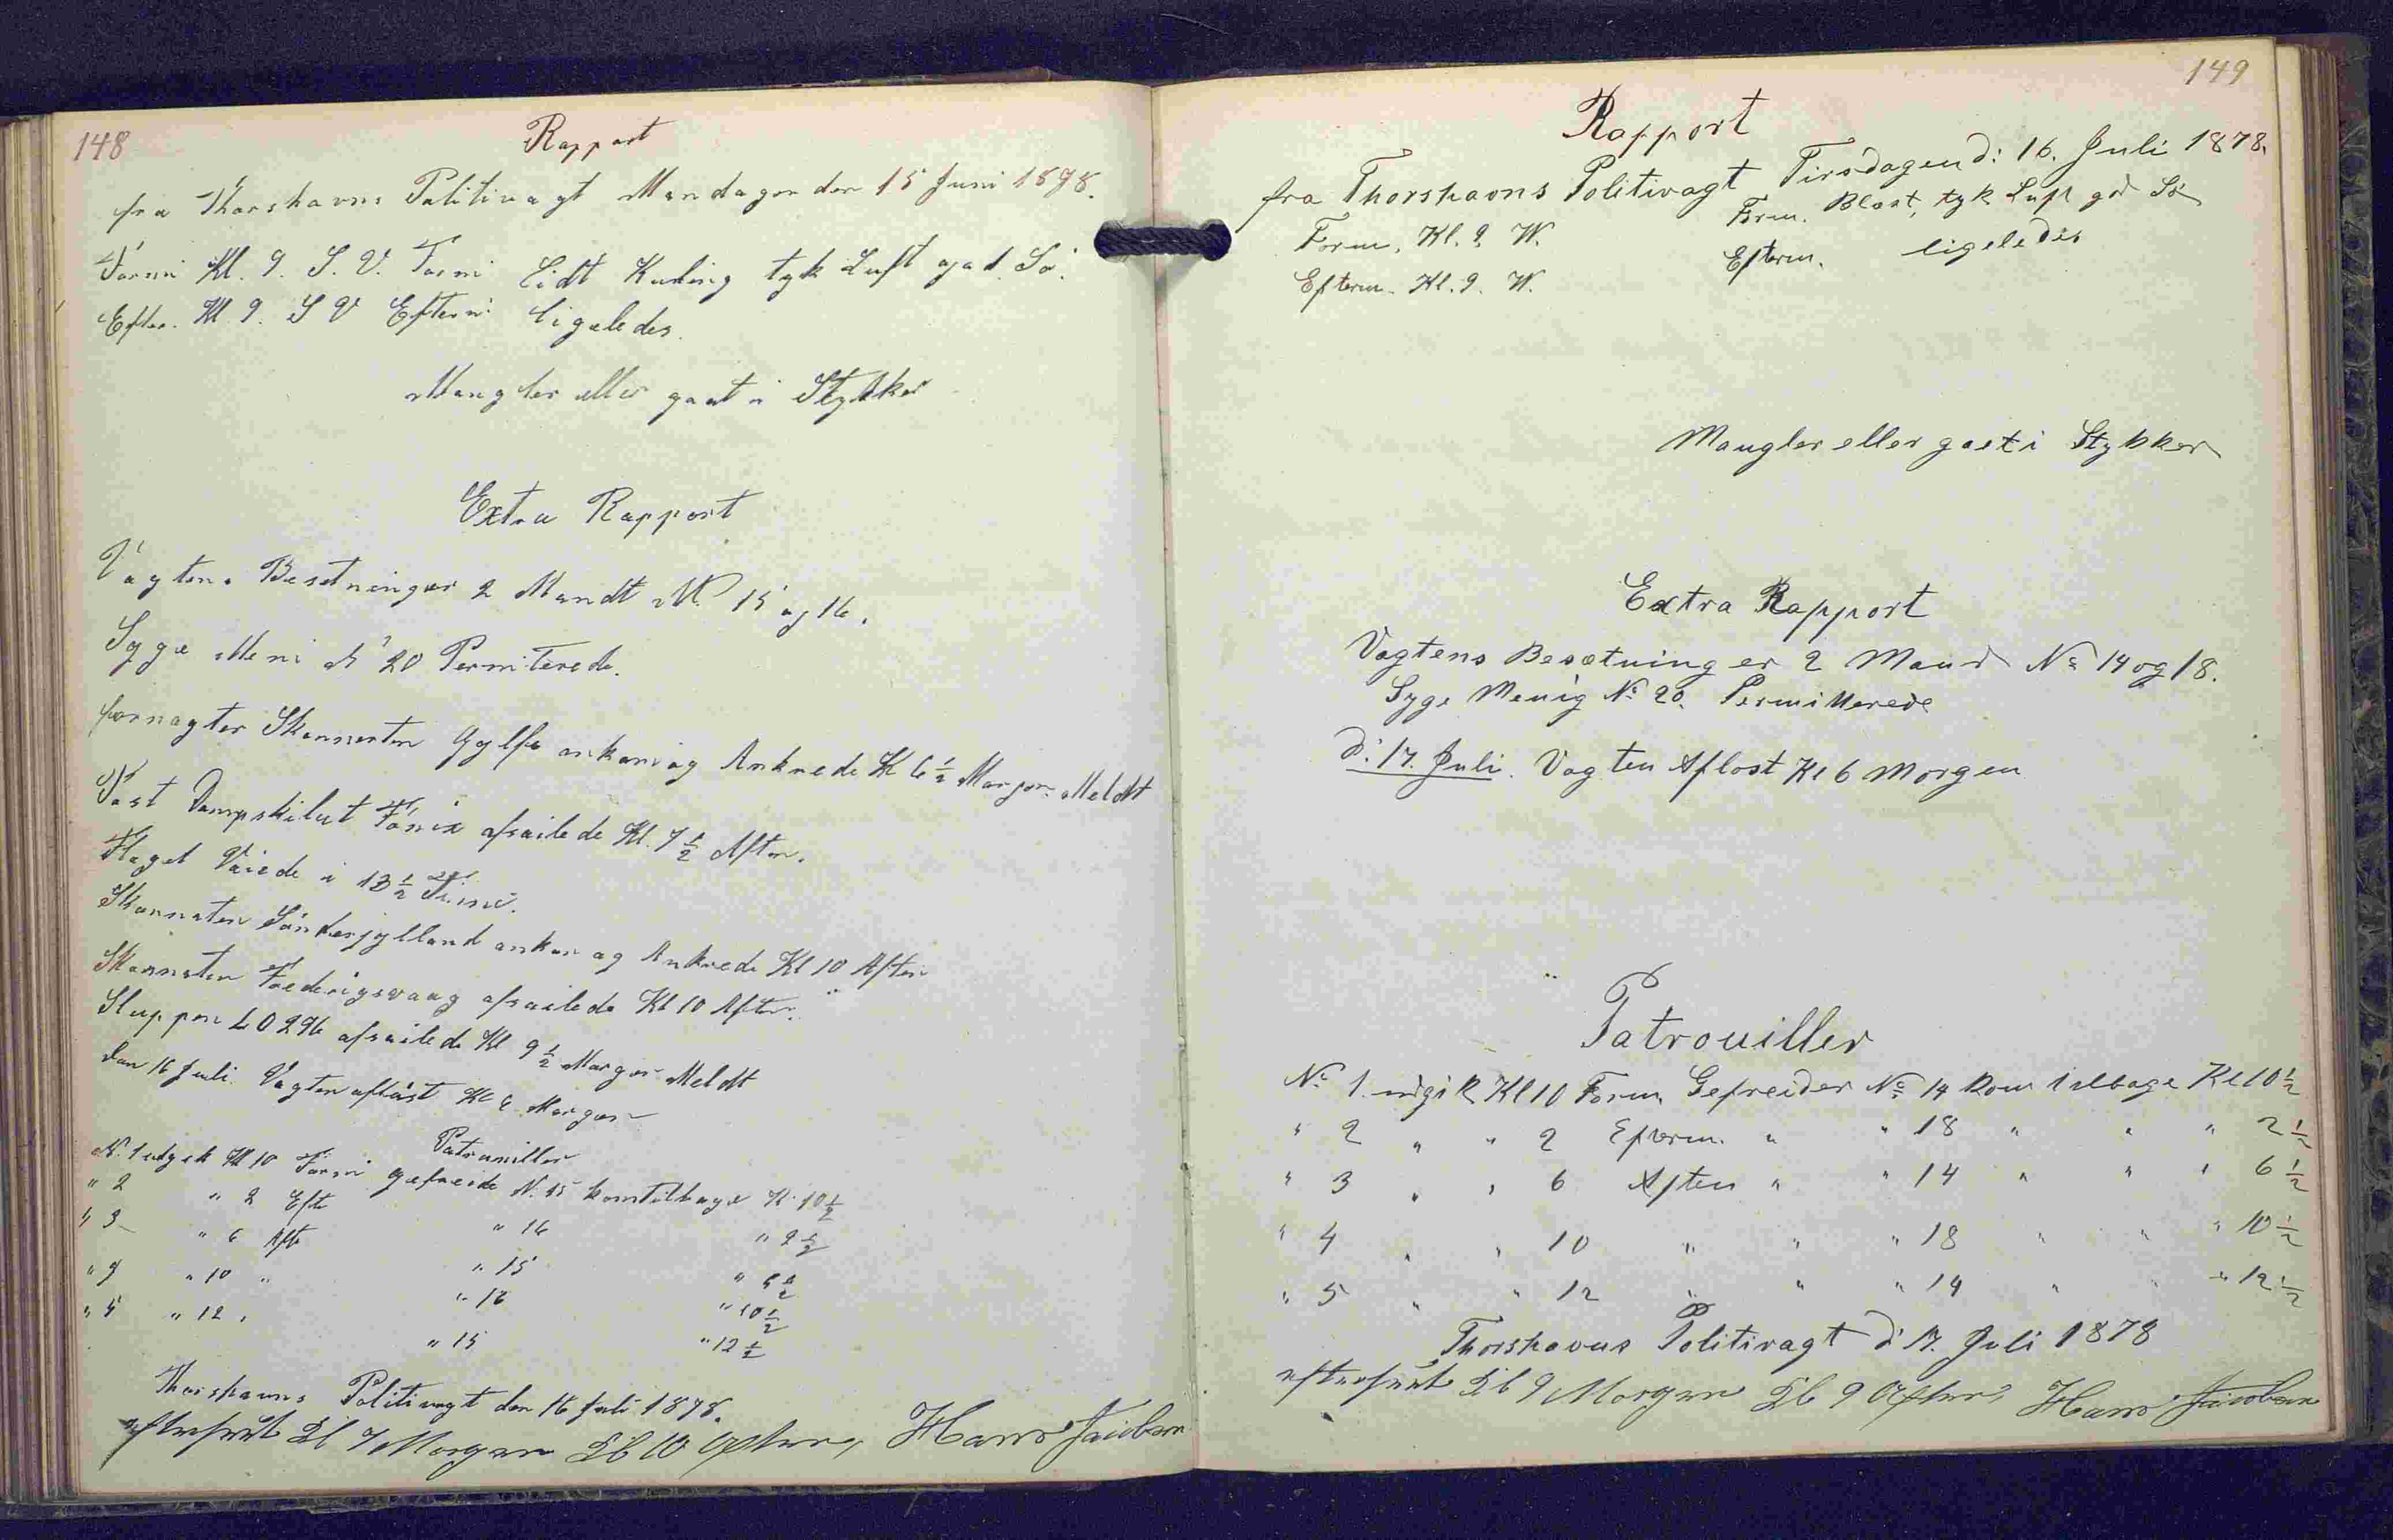 148
Rapport
fra Thorshavns Politivagt Mandagen den 15 Juni 1878.
Formi Kl. 9. S. V. Formi Lidt Kuling tyk Luft god Sö.
Efter. Kl 9. S V Efterm ligeledes.
Mangler eller gaat i Stykker
Extra Rapport
Vagtens Besetninger 2 Mandt No. 15 og 16.
Syge Meni No 20 Permiterede.
Skonnerten Gylfe ankom og Ankrede Kl 6½ Morgen. Meldt
Post Dampskibet Fönix afseilede Kl. 7½ Aften.
Flaget Vaiede i 13½ Time.
Skonnaten Sönderjylland ankom og Ankrede Kl 10 Aften
Skonnaten Frederigsvaag afseilede Kl 10 Aften.
Sluppen LO 296 afseilede Kl 9½ Morgen Meldt
Den 16 Juli. Vagten aflöst Kl 6 Morgen
Patrouiller
No. 1 udgik Kl 10 Formi Gefreide N. 15 kom tilbage Kl 10½
" 2 " 2 Efte " 16 " 2½
" 3 " 6 Afte " 15 " 6½
" 4 " 10 " " 16 " 10½
" 5 " 12 " " 15 " 12½
Thorshavns Politivagt den 16 Juli 1878.
efterseet Kl 7 Morgen Kl 10 Aften, Hans Jacobsen
149
Rapport
fra Thorshavns Politivagt Tirsdagen d: 16. Juli 1878.
Form. Kl. 9 W. Form. Blæst, tyk Luft god Sö
Efterm. Kl. 9. W. Efterm. ligeledes
Mangler eller gaet i Stykker
Extra Rapport
Vagtens Besætning er 2 Mand No 14 og 18.
Syge Menig No 20. Permitterede
d: 17. Juli. Vagten Aflöst Kl 6 Morgen
Patrouiller
No 1. udgik Kl 10 Form. Gefreider No 14 kom tilbage Kl 10½
" 2 " " 2 Efterm. " " 18 " " " 2½
" 3 " " 6 Aften " " 14 " " " 6½
" 4 " " 10 " " " 18 " " " 10½
" 5 " " 12 " " " 14 " " " 12½
Thorshavns Politivagt d. 17. Juli 1878
efterseet Kl 9 Morgen Kl 9 Aften, Hans Jacobsen